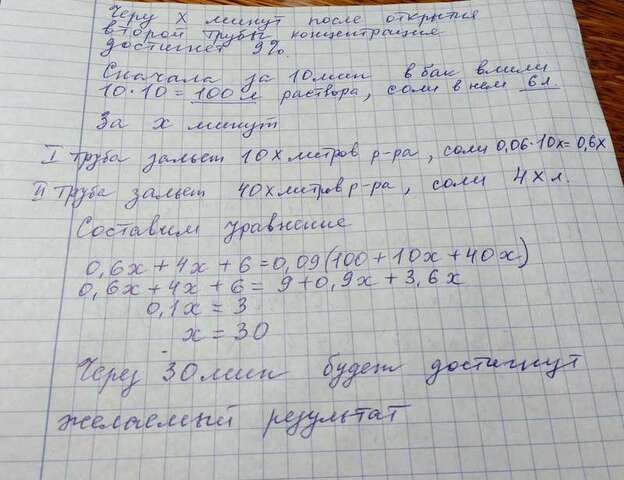 Через X минут после открытия
второй трубы концентрация
достигнет 9%.
Сначала за 10 мин в бак влили
10·10 = 100 л раствора, соли в нем 6 л.
За x минут
I труба зальет 10x литров р-ра, соли 0,06·10x = 0,6x
II труба зальет 40x литров р-ра, соли 4x л.
Составим уравнение
0,6x + 4x + 6 = 0,09(100 + 10x + 40x)
0,6x + 4x + 6 = 9 + 0,9x + 3,6x
0,1x = 3
x = 30
Через 30 мин будет достигнут
желаемый результат